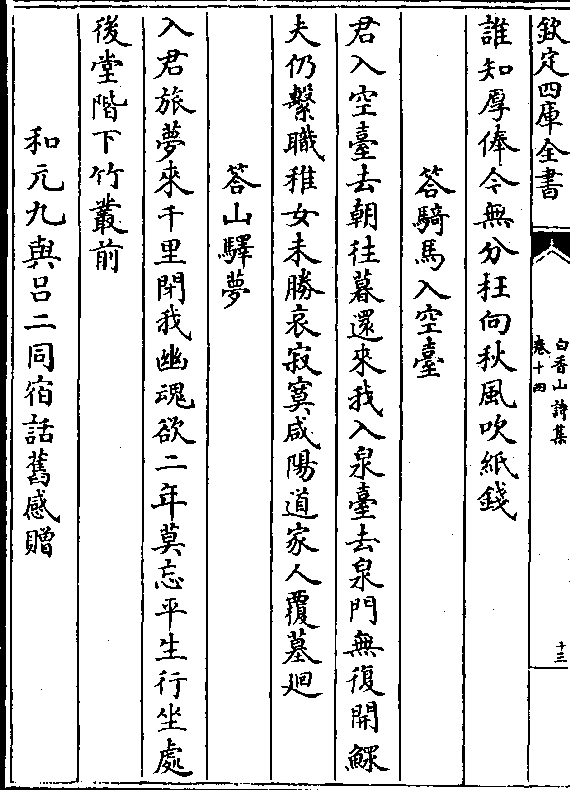 欽定四庫全書
白香山詩集
卷十四
十三
誰知厚俸今無分抂向秋風吹紙錢
答騎馬入空臺
君入空臺去朝往暮還來我入泉臺去泉門無復開鰥
夫仍繫職稚女未勝哀寂寞咸陽道家人覆墓廻
答山驛夢
入君旅夢來千里閉我幽魂欲二年莫忘平生行坐處
後堂階下竹叢前
和元九與吕二同宿話舊感贈